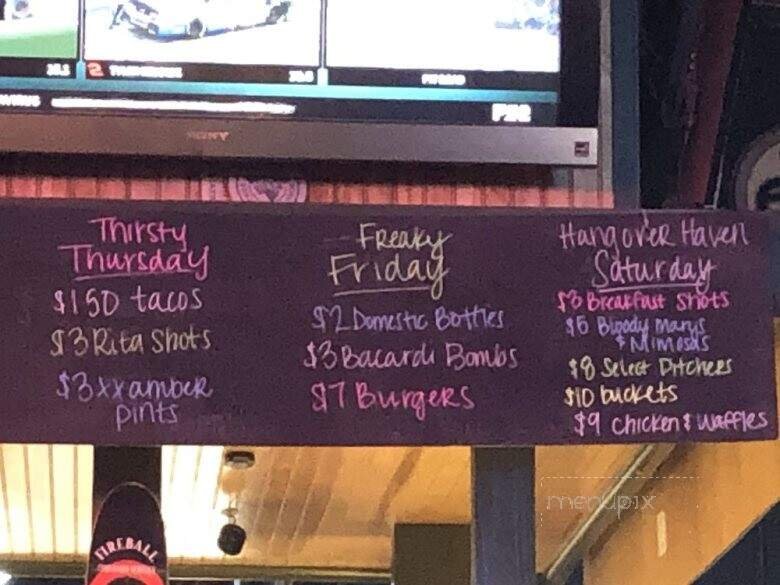 SONY
Thirsty
Thursday
$150 tacos
$3 Rita Shots
$3 xx amber
pints
Freaky
Friday
$2 Domestic Bottles
$3 Bacardi Bombs
$7 Burgers
Hangover Haven
Saturday
$3 Breakfast Shots
$5 Bloody Marys
& Mimosas
$8 Select Pitchers
$10 buckets
$9 Chicken & Waffles
FIREBALL
menupix